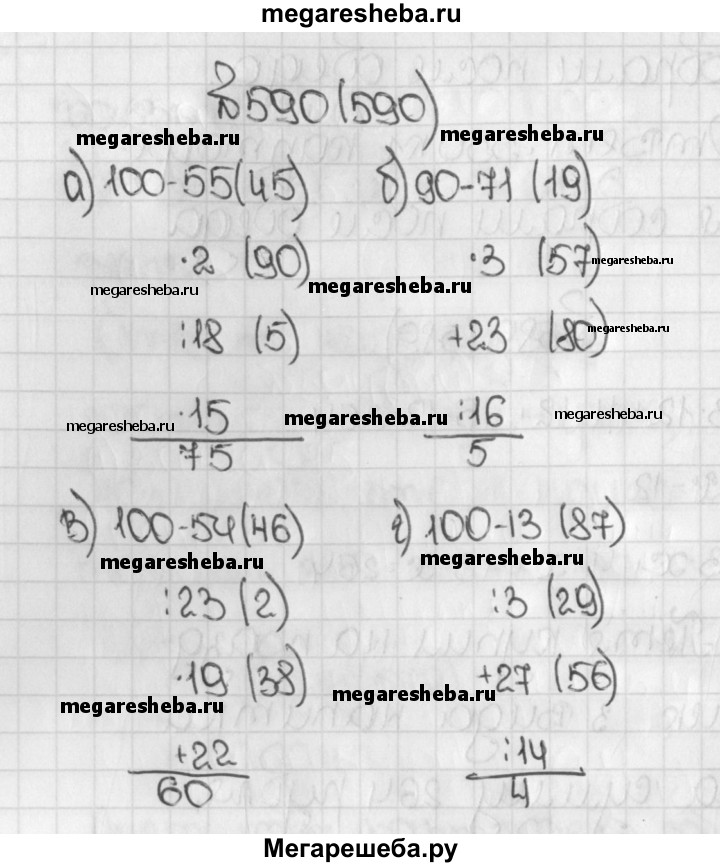 megaresheba.ru
№590(590)
megaresheba.ru megaresheba.ru
а) 100-55(45) б) 90-71 (19)
·2 (90) ·3 (57)
megaresheba.ru megaresheba.ru megaresheba.ru
:18 (5) +23 (80)
megaresheba.ru
·15 :16
megaresheba.ru megaresheba.ru megaresheba.ru
75 5
в) 100-54(46) г) 100-13 (87)
megaresheba.ru megaresheba.ru
:23 (2) :3 (29)
·19 (38) +27 (56)
megaresheba.ru megaresheba.ru
+22 :14
60 4
Мегарешеба.ру